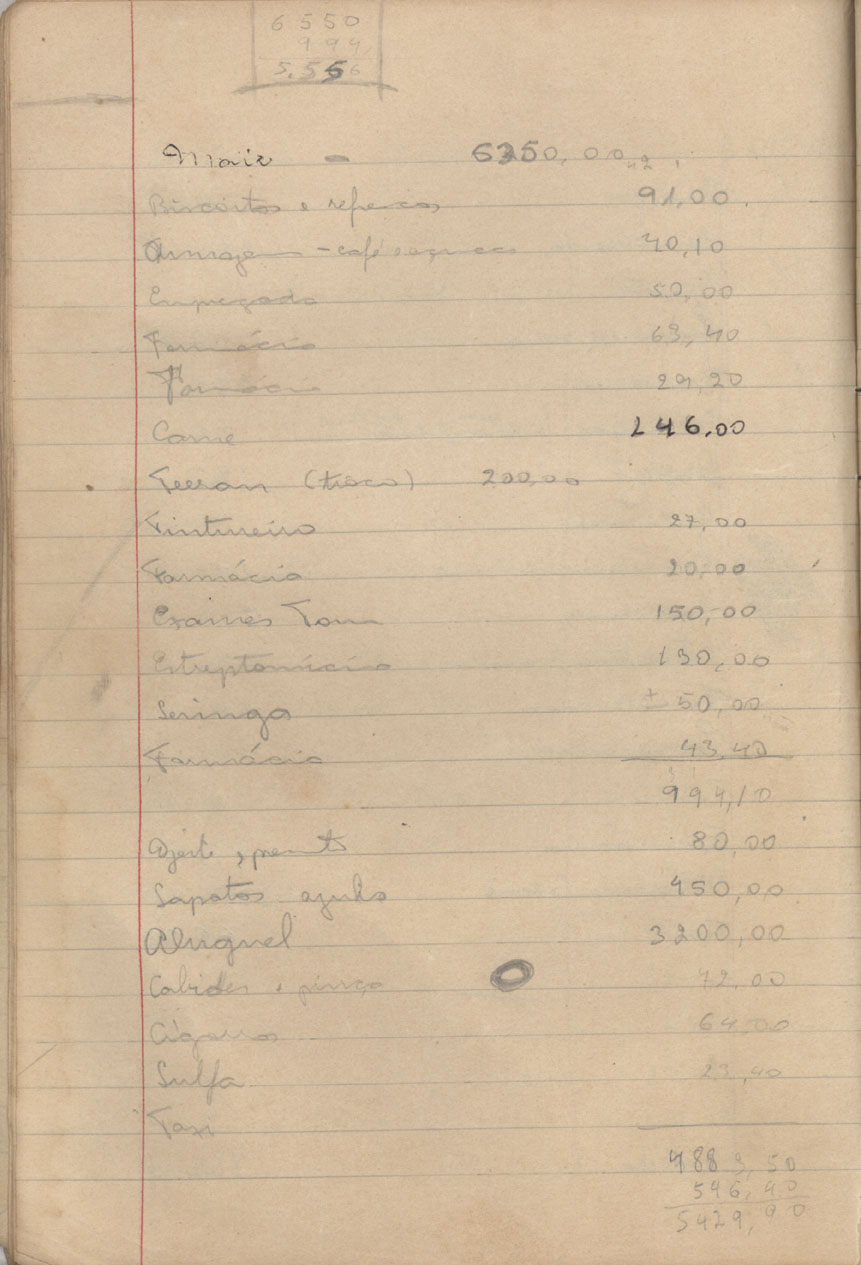 6550
994,
5.556
Mair - 6350,00
Biscoitos e refrescos 91,00
Armazem - café 70,10
Empregada 50,00
Farmácia 63,40
Farmácia 29,20
Carne 246,00
(troco) 200,00
Tintureiro 27,00
Farmácia 20,00
Exames Tom 150,00
Estreptomicina 130,00
Seringa ± 50,00
Farmácia 43,40
994,10
80,00
Sapatos 450,00
Aluguel 3200,00
Cabides e pinça 72,00
Cigarros 64,00
Sulfa 23,40
Taxi
4883,50
546,40
5429,90